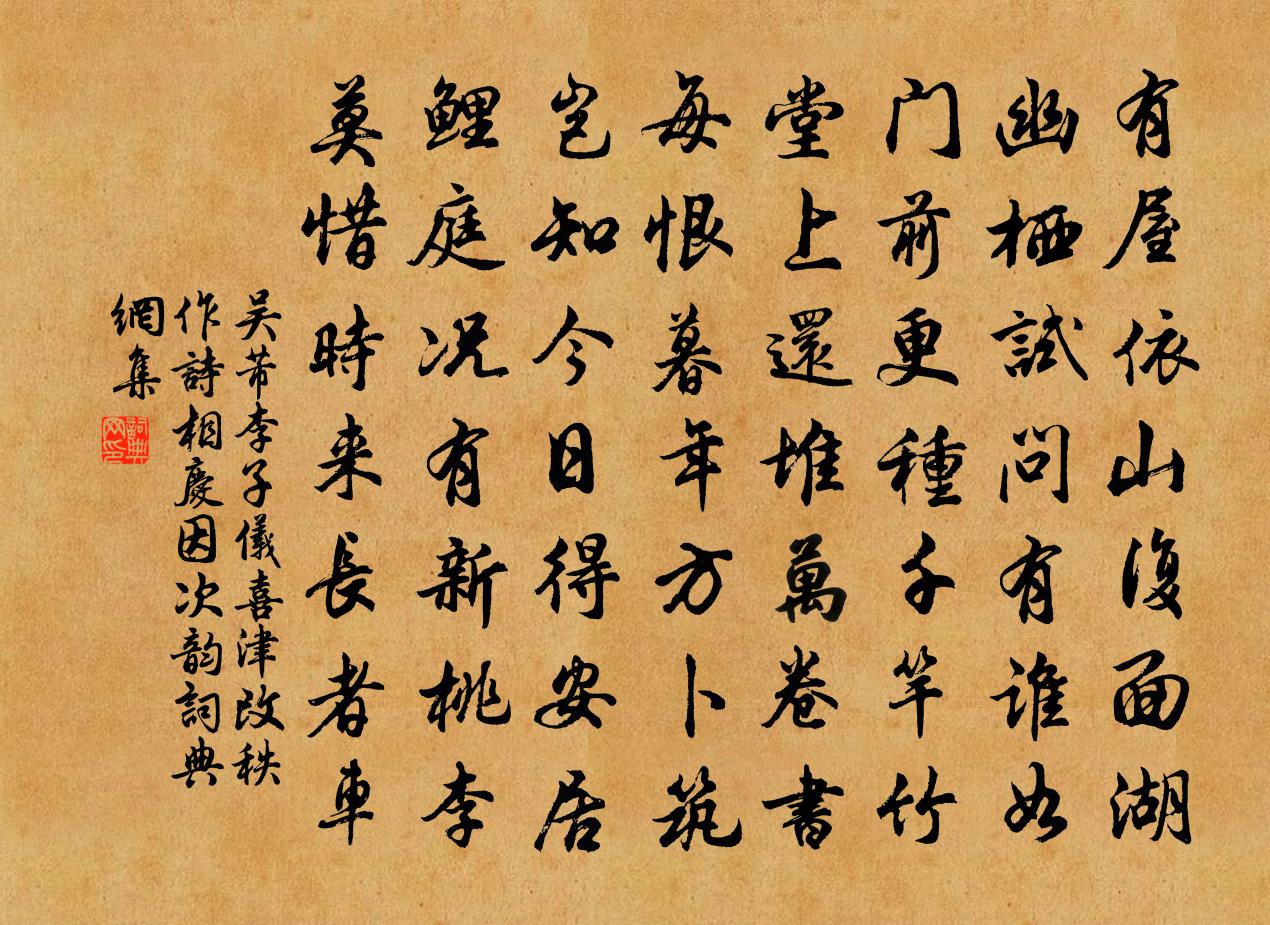 有屋依山復面湖
幽栖試問有誰如
门前更種千竿竹
堂上還堆萬卷書
每恨暮年方卜筑
岂知今日得安居
鯉庭况有新桃李
莫惜時来長者車
吴芾李子儀喜津改秩
作詩相慶因次韵詞典
網集
詞典网印